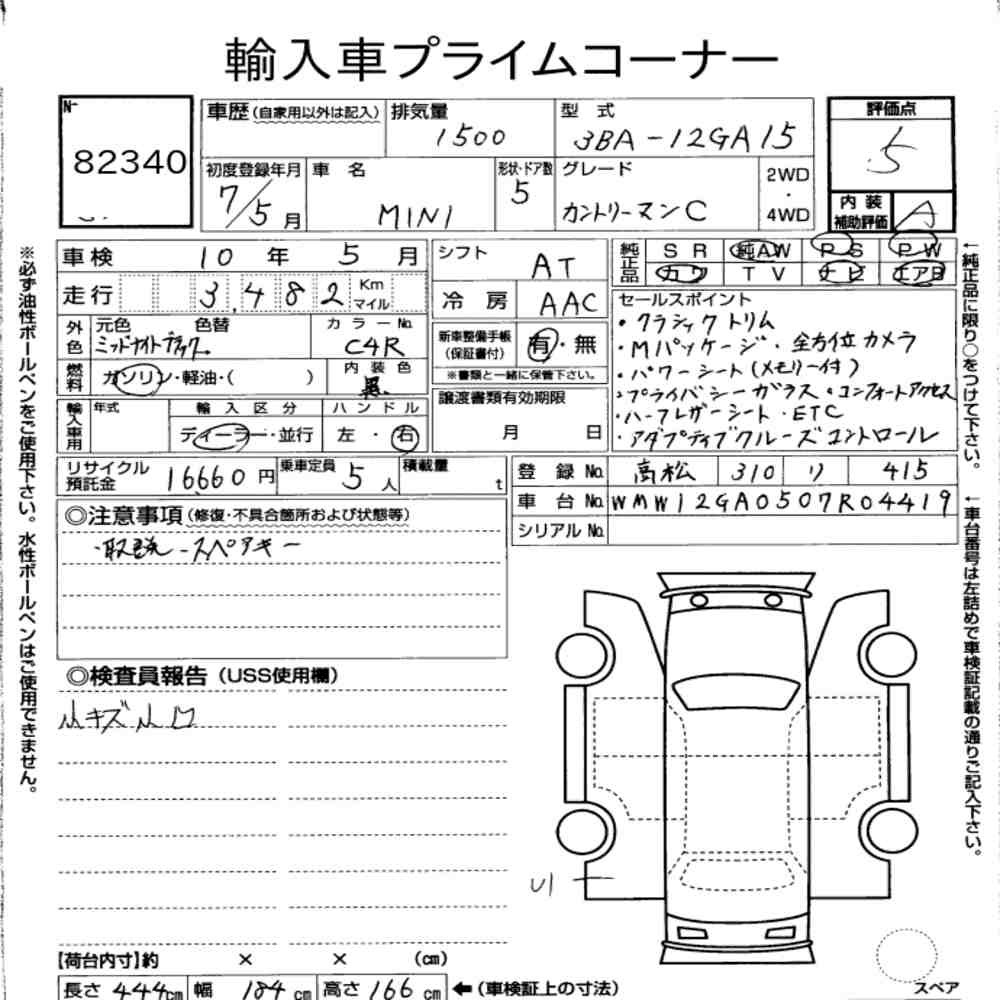 輸入車プライムコーナー
No.
82340
車歴 (自家用以外は記入)
排気量
1500
型式
3BA-12GA15
評価点
5
初度登録年月
7/5月
車名
MINI
形状・ドア数
5
グレード
カントリーマンC
2WD
・
4WD
内装
補助評価
A
車検 10年 5月
シフト
AT
純正品
SR 純AW PS PW
カワ TV ナビ エアB
走行 3,482 Km マイル
冷房
AAC
セールスポイント
・クラシックトリム
・Mパッケージ・全方位カメラ
・パワーシート(メモリー付)
・プライバシーガラス・コンフォートアクセス
・ハーフレザーシート・ETC
・アダプティブクルーズコントロール
外色
元色 色替
ミッドナイトブラック
カラーNo.
C4R
新車整備手帳
(保証書付)
有・無
※書類と一緒に保管下さい。
燃料
ガソリン・軽油・( )
内装色
黒
譲渡書類有効期限
月 日
輸入車用
年式
輸入区分
ディーラー・並行
ハンドル
左・右
リサイクル
預託金
16660円
乗車定員
5人
積載量
t
登録No. 高松 310 リ 415
車台No. WMW12GA0507R04419
シリアルNo.
◎注意事項 (修復・不具合箇所および状態等)
・取説・スペアキー
◎検査員報告 (USS使用欄)
小キズ小凹
U1
【荷台内寸】約 × × (cm)
長さ 444cm 幅 184cm 高さ 166cm ←(車検証上の寸法)
スペア
※必ず油性ボールペンをご使用下さい。水性ボールペンはご使用できません。
←純正品に限り○をつけて下さい。
←車台番号は左詰めで車検証記載の通りご記入下さい。